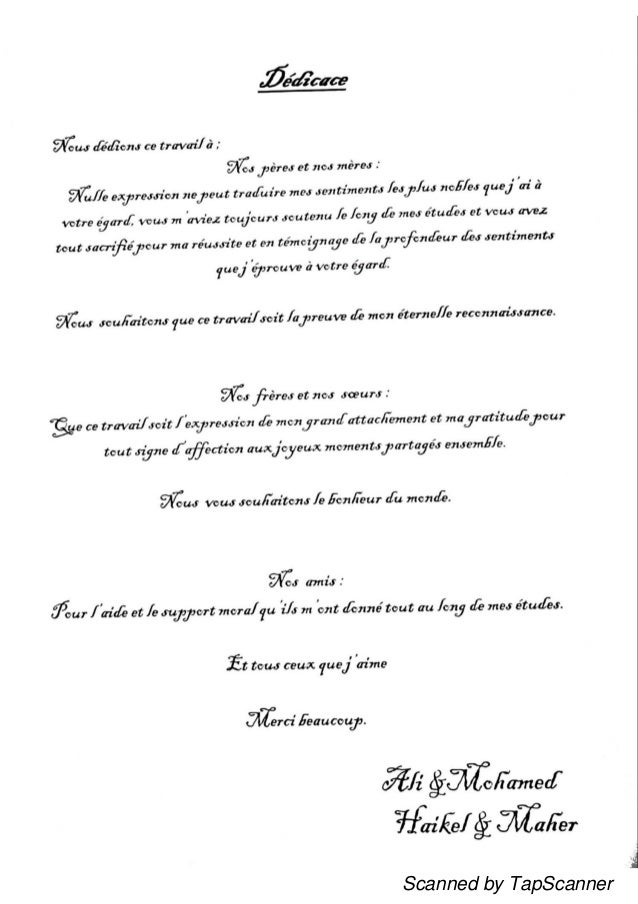 Dédicace
Nous dédions ce travail à :
Nos pères et nos mères :
Nulle expression ne peut traduire mes sentiments les plus nobles que j'ai à
votre égard, vous m'aviez toujours soutenu le long de mes études et vous avez
tout sacrifié pour ma réussite et en témoignage de la profondeur des sentiments
que j'éprouve à votre égard.
Nous souhaitons que ce travail soit la preuve de mon éternelle reconnaissance.
Nos frères et nos sœurs :
Que ce travail soit l'expression de mon grand attachement et ma gratitude pour
tout signe d'affection aux joyeux moments partagés ensemble.
Nous vous souhaitons le bonheur du monde.
Nos amis :
Pour l'aide et le support moral qu'ils m'ont donné tout au long de mes études.
Et tous ceux que j'aime
Merci beaucoup.
Ali & Mohamed
Haikel & Maher
Scanned by TapScanner